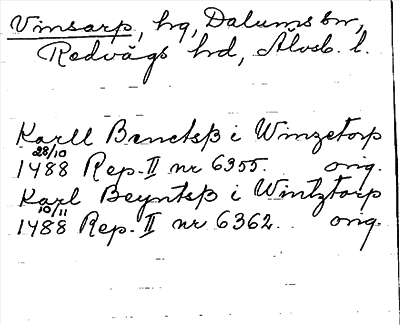 Vinsarp, hg, Dalums sn,
Redvägs hd, Älvsb. l.
Karll Benctsß i Winzetorp
28/10
1488 Rep. II nr 6355. orig.
Karl Beyntsß i Wintztorp
10/11
1488 Rep. II nr 6362. orig.